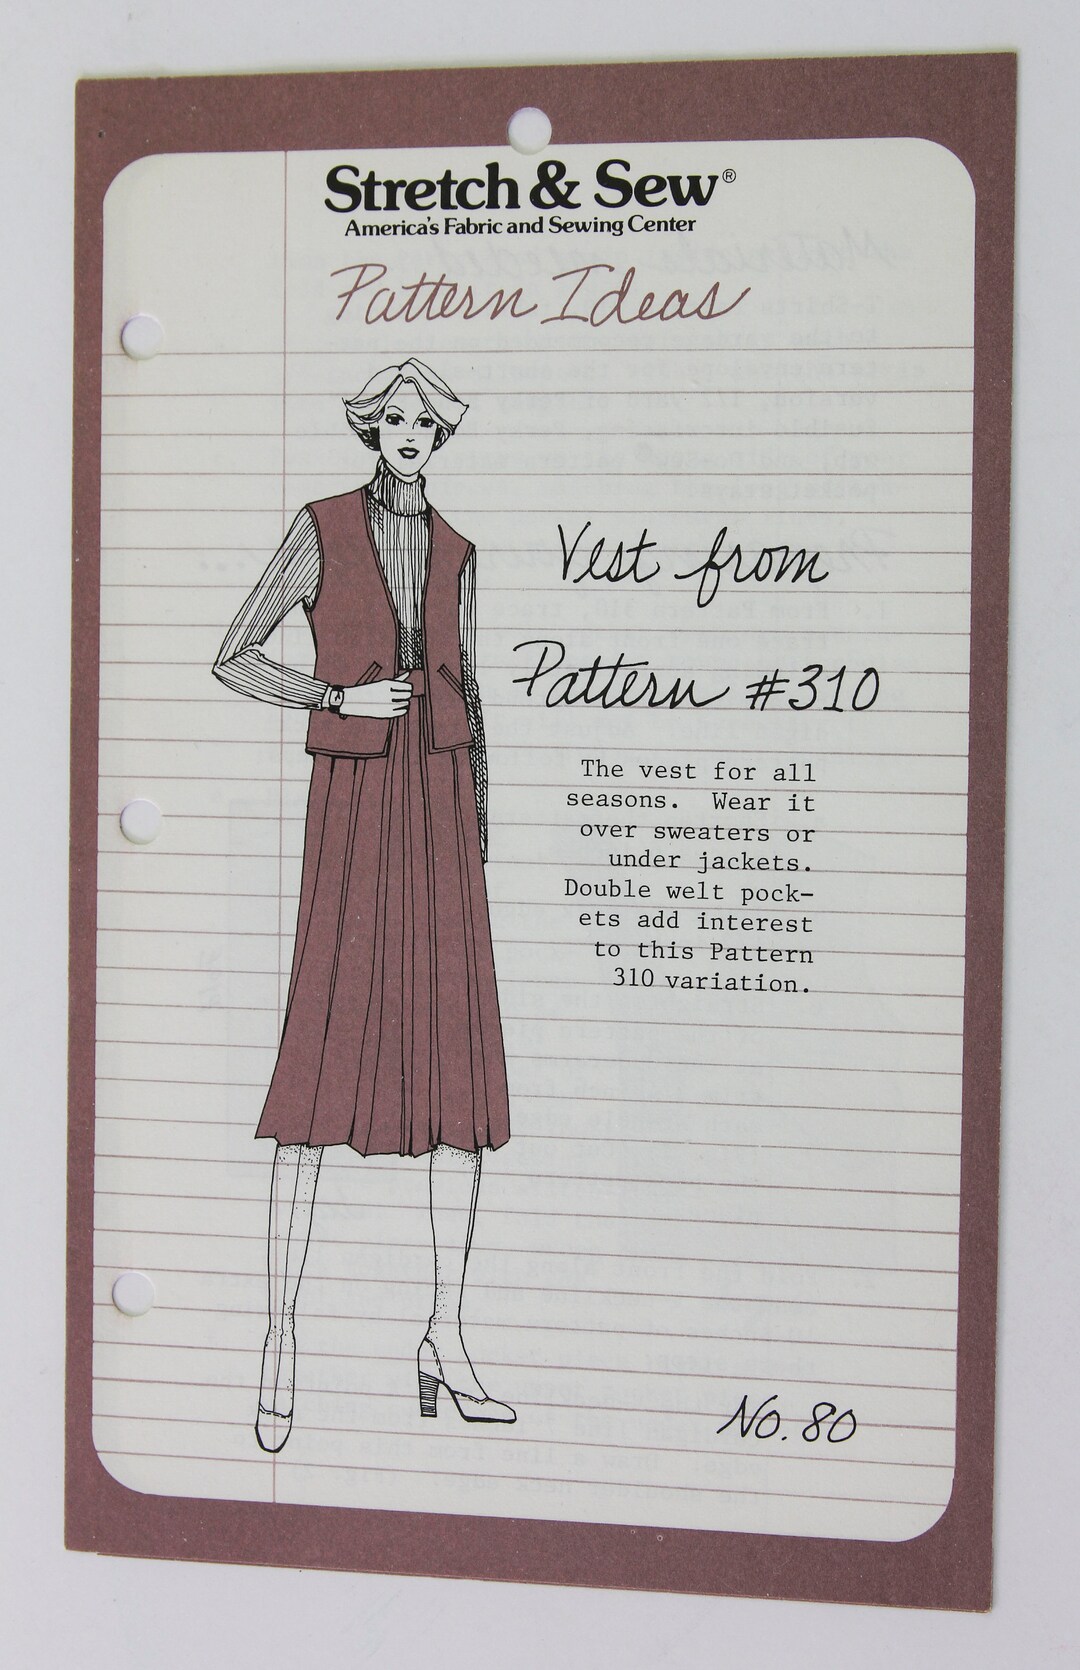 Stretch & Sew®
America's Fabric and Sewing Center
Pattern Ideas
Vest from
Pattern #310
The vest for all
seasons. Wear it
over sweaters or
under jackets.
Double welt pock-
ets add interest
to this Pattern
310 variation.
No. 80